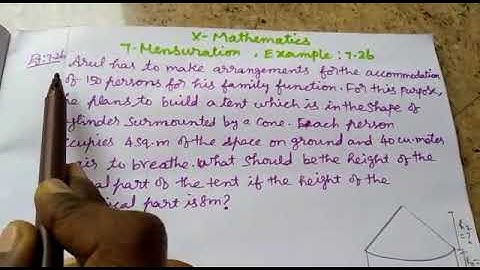 X-Mathematics
7-Mensuration, Example: 7.26
Eg:7.26 Arul has to make arrangements for the accommodation
of 150 persons for his family function. For this purpose,
he plans to build a tent which is in the shape of
cylinder surmounted by a cone. Each person
ccupies 4 sq.m of the space on ground and 40 cu.meter
air to breathe. What should be the height of the
al part of the tent if the height of the
ical part is 8m?
h₂
=?